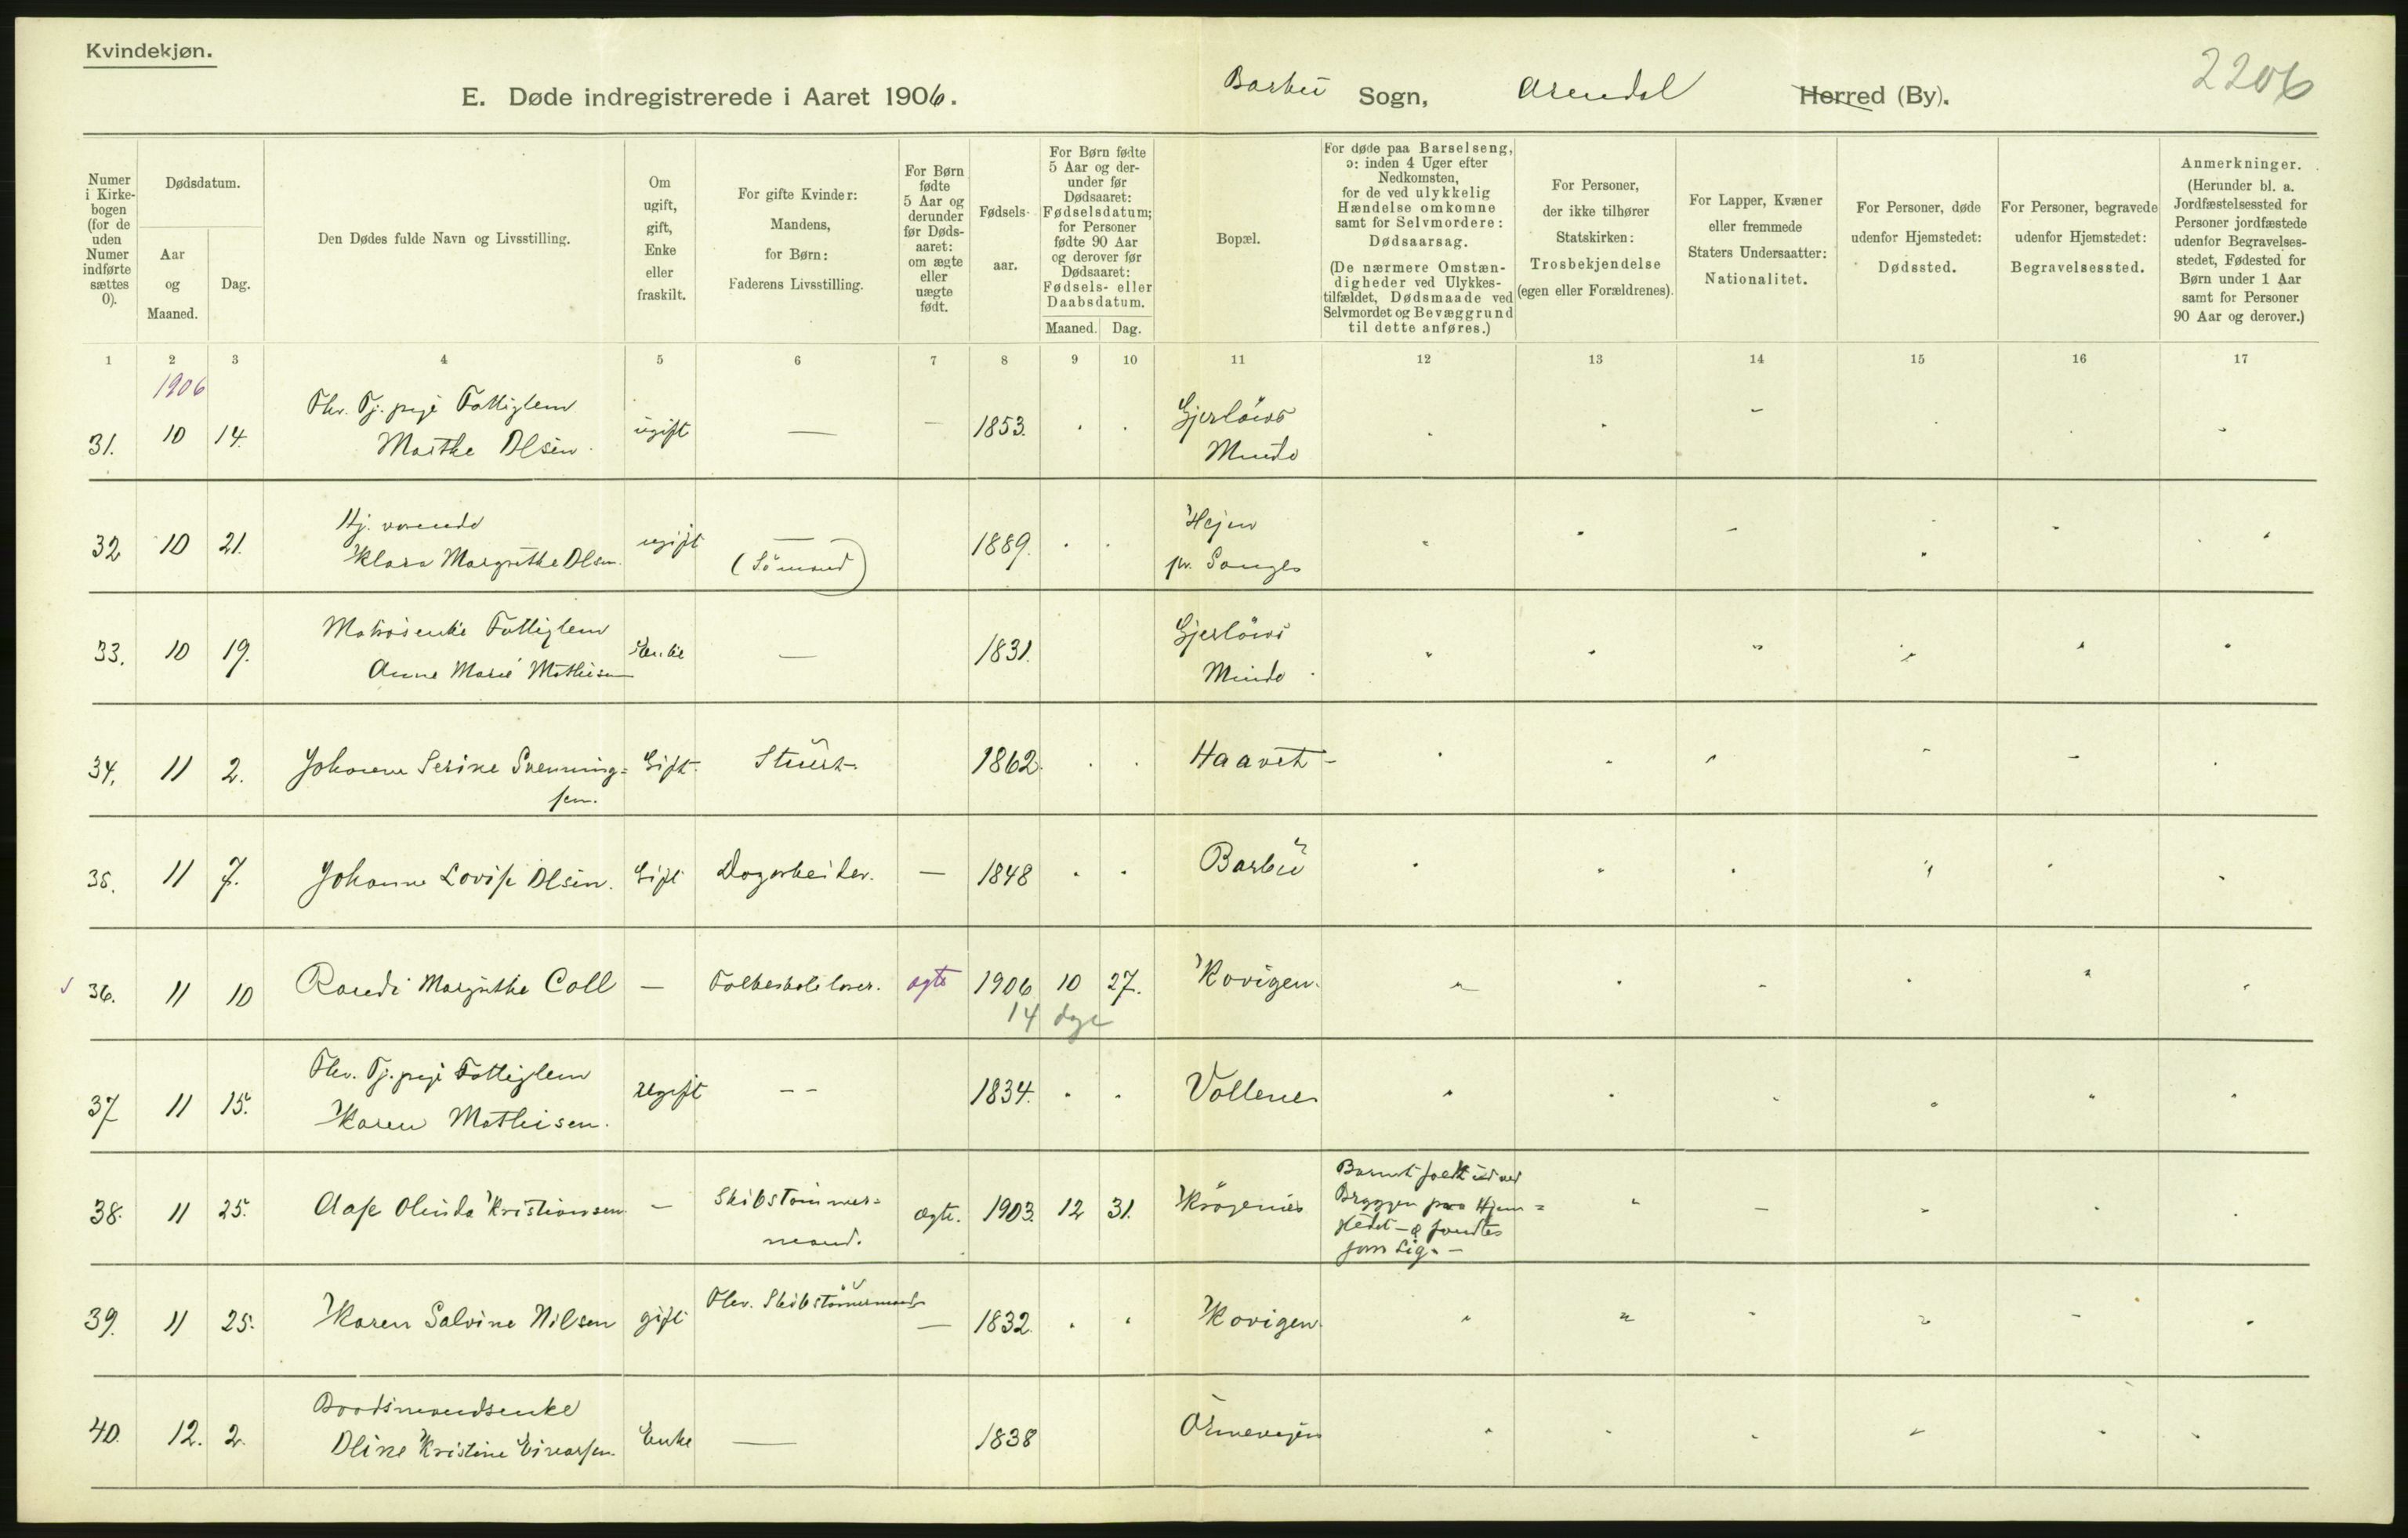 Kvindekjøn.
2206
E. Døde indregistrerede i Aaret 1906.
Barbu Sogn, Arendal Herred (By).
Numer i Kirkebogen (for de uden Numer indførte sættes 0).
Dødsdatum.
Aar og Maaned.
Dag.
Den Dødes fulde Navn og Livsstilling.
Om ugift, gift, Enke eller fraskilt.
For gifte Kvinder: Mandens, for Børn: Faderens Livsstilling.
For Børn fødte 5 Aar og derunder før Dødsaaret: om ægte eller uægte født.
Fødselsaar.
For Børn fødte 5 Aar og derunder før Dødsaaret: Fødselsdatum; for Personer fødte 90 Aar og derover før Dødsaaret: Fødsels- eller Daabsdatum.
Maaned. Dag.
Bopæl.
For døde paa Barselseng, ɔ: inden 4 Uger efter Nedkomsten, for de ved ulykkelig Hændelse omkomne samt for Selvmordere: Dødsaarsag.
(De nærmere Omstændigheder ved Ulykkestilfældet, Dødsmaade ved Selvmordet og Bevæggrund til dette anføres.)
For Personer, der ikke tilhører Statskirken: Trosbekjendelse (egen eller Forældrenes).
For Lapper, Kvæner eller fremmede Staters Undersaatter: Nationalitet.
For Personer, døde udenfor Hjemstedet: Dødssted.
For Personer, begravede udenfor Hjemstedet: Begravelsessted.
Anmerkninger.
(Herunder bl. a. Jordfæstelsessted for Personer jordfæstede udenfor Begravelsesstedet, Fødested for Børn under 1 Aar samt for Personer 90 Aar og derover.)
1 2 3 4 5 6 7 8 9 10 11 12 13 14 15 16 17
1906
Fhv. Tj.pige Fattiglem
31. 10 14. Marthe Olsen. ugift — — 1853. Gjerløws Minde
Hj. værende
32 10 21. Klara Margrethe Olsen. ugift — (Sømand) 1889. Hejen pr. Songe
Matrosenke Fattiglem
33. 10 19. Anne Marie Mathisen Enke — 1831. Gjerløws Minde
34. 11 2. Johanne Serine Svenningsen. Gift. Stuert. 1862. Haavet
35. 11 7. Johanne Lovise Olsen. Gift Dagarbeider. — 1848 Barbu
36. 11 10 Randi Margrethe Coll — Folkeskolelærer. ægte 1906 10 27. Kovigen.
14 dage
Fhv. Tj.pige Fattiglem
37 11 15. Karen Mathisen. Ugift — — 1834. Vollene
38. 11 25. Aase Olinda Kristiansen — Skibstømmermand. ægte. 1903. 12 31. Krøgenes
Barnet faldt ud ved
Bryggen paa Hjem=
stedet — & fandtes
som Lig. —
39. 11 25. Karen Salvine Nilsen gift Fhv. Skibstømmermand — 1832. Kovigen.
Baadsmandsenke
40. 12. 2. Oline Kristine Einarsen. Enke — 1838